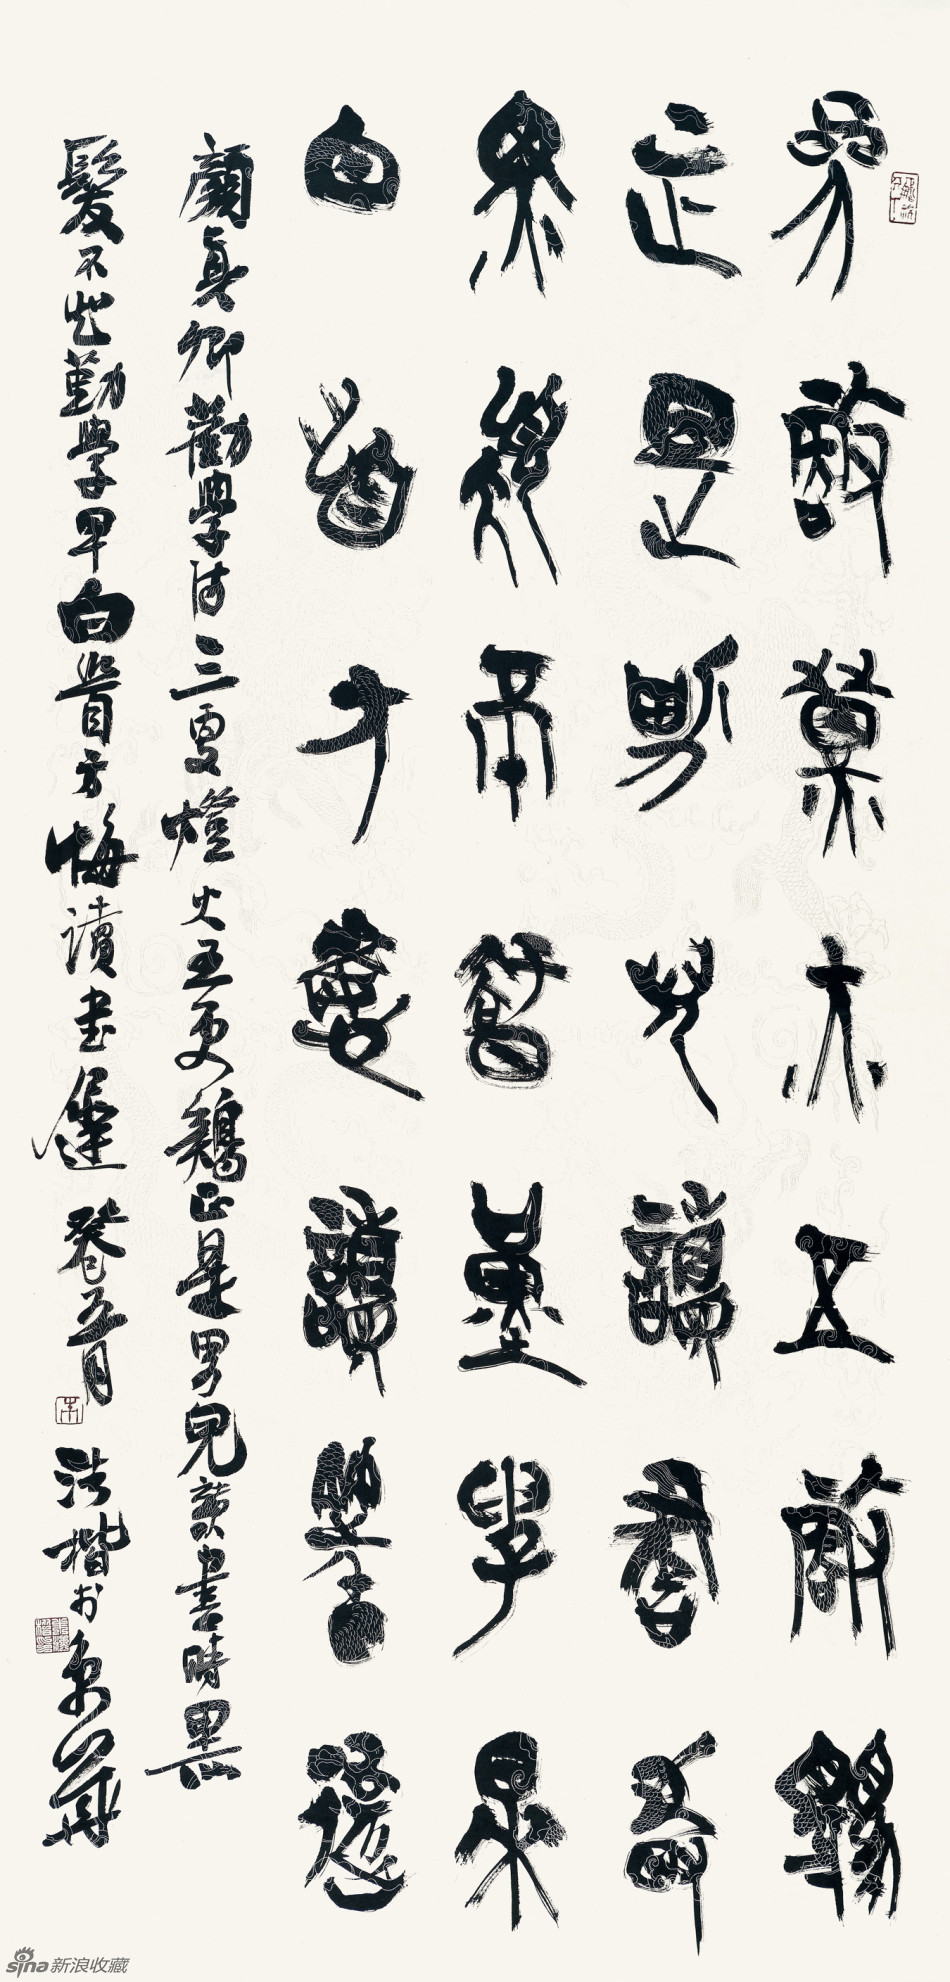 三更燈火五更雞
正是男兒讀書時
黑髮不知勤學早
白首方悔讀書遲
顏真卿勸學詩三更燈火五更鷄正是男兒讀書時黑
髮不知勤學早白首方悔讀書遲 癸巳五月 楷於京華
sina新浪收藏